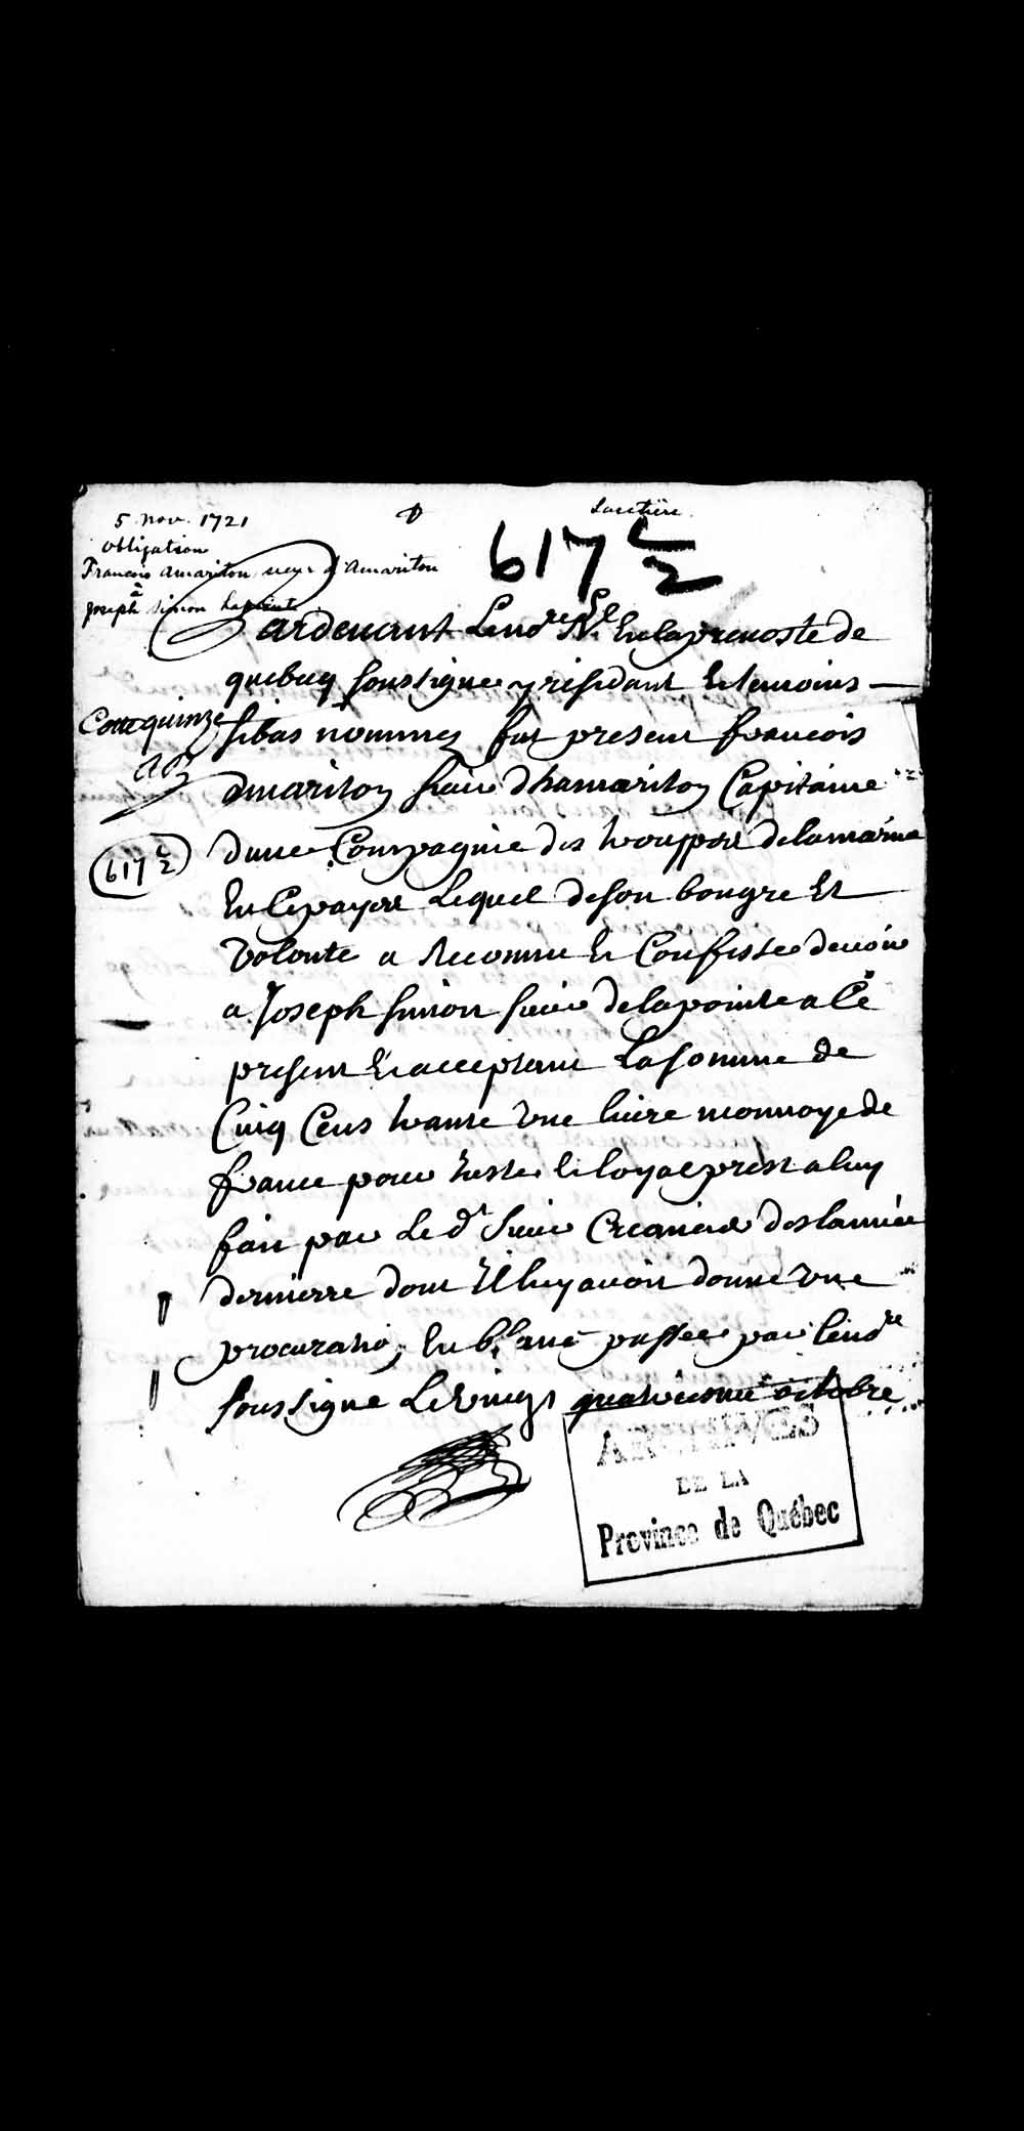 5 nov. 1721
obligation
François Amariton, sieur d'Amariton
à
Joseph Simon Lapointe
617 L/2
Pardevant Lend.re N.re Royal En la prevoste de
quebeq soussigne y residant Et temoins
Cotte quinze
si bas nommez fut present francois
amariton sieur dhamariton Capitaine
617 L/2
dune Compagnie des trouppes de la marine
En Ce payis Lequel de son bongre Et
volonte a Reconnu Et Confesse devoir
a Joseph simon sieur de lapointe a Ce
present Et acceptant La somme de
Cinq Cens trante une livre monnoye de
france pour juste Et loyal prest a luy
fait par Le d.t sieur Creancier des lannée
dernierre dont Il luy avoit donné une
procuration En blanc passée par lend.re
soussigne Le vingt quatriesme octobre
ARCHIVES
DE LA
Province de Québec